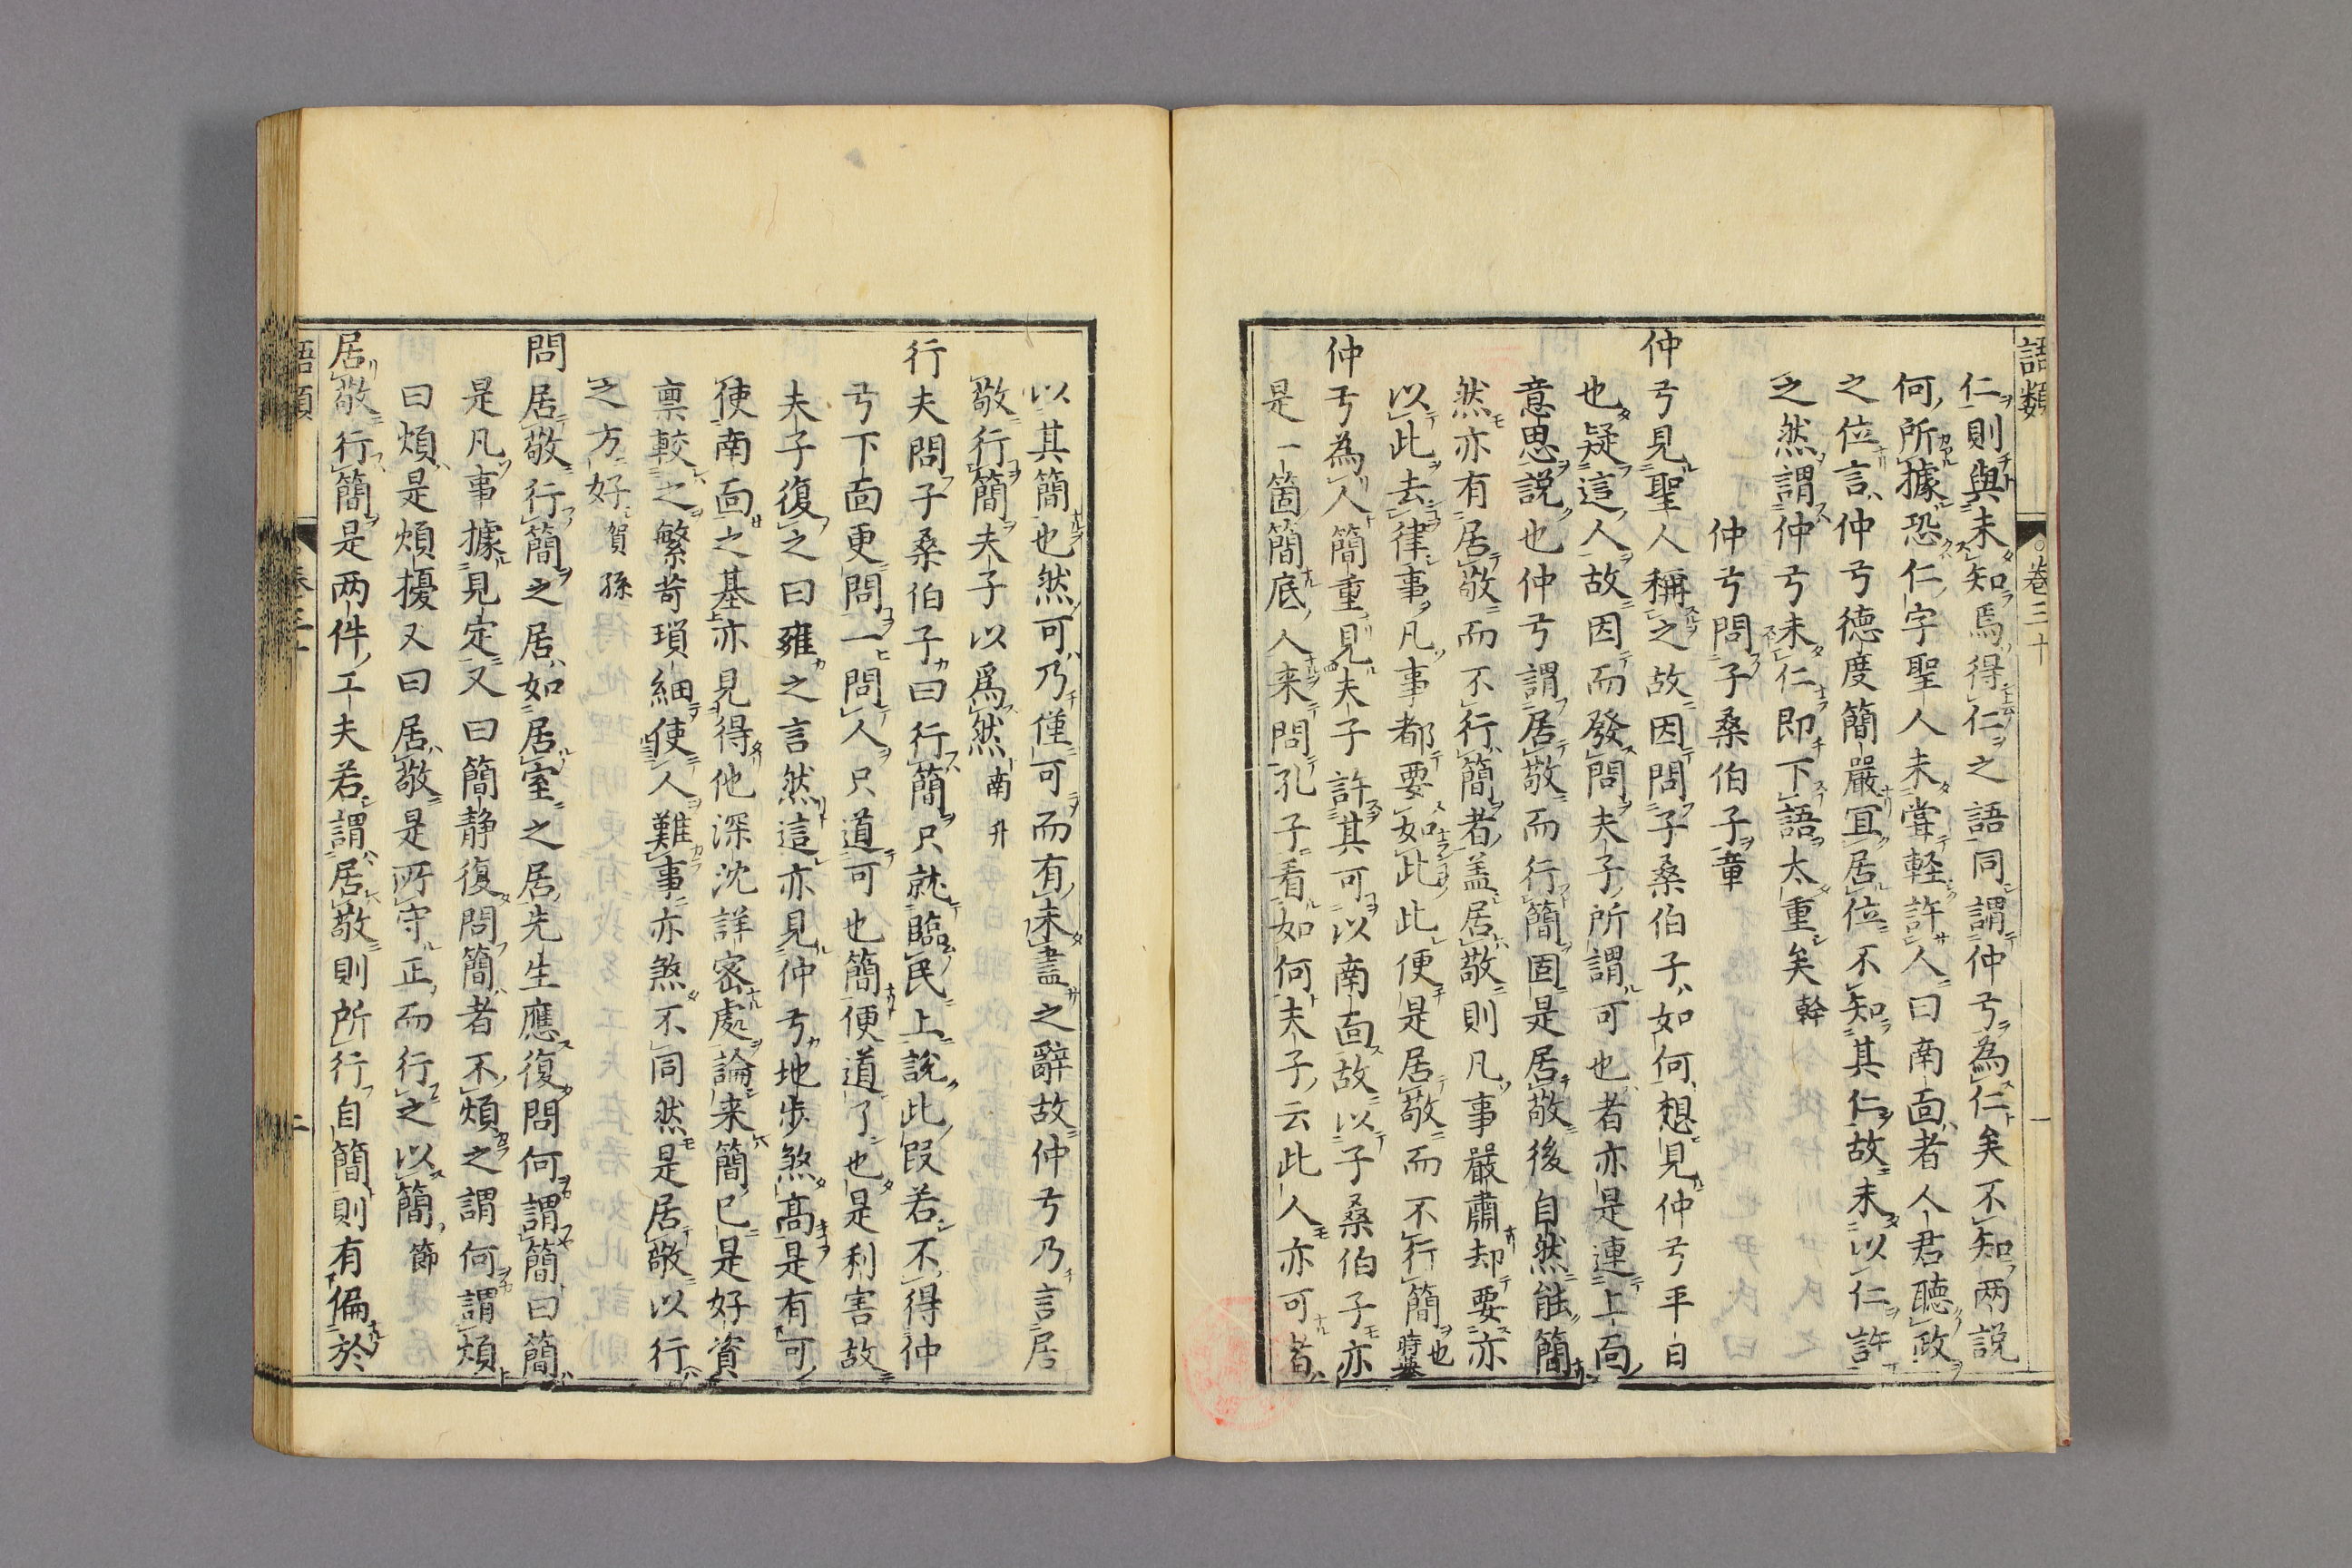 語類 卷三十 一
仁則與未知焉得仁之語同謂仲弓為仁矣不知兩説
何所據恐仁字聖人未嘗軽許人曰南面者人君聽政
之位言仲弓徳度簡嚴冝居位不知其仁故未以仁許
之然謂仲弓未仁即下語太重矣幹
仲弓問子桑伯子章
仲弓見聖人稱之故因問子桑伯子如何想見仲弓平日
也疑這人故因而發問夫子所謂可也者亦是連上面
意思説也仲弓謂居敬而行簡固是居敬後自然能簡
然亦有居敬而不行簡者盖居敬則凡事嚴肅却要亦
以此去律事凡事都要如此此便是居敬而不行簡也時舉
仲弓為人簡重見夫子許其可以南面故以子桑伯子亦
是一箇簡底人来問孔子看如何夫子云此人亦可者
以其簡也然可乃僅可而有未盡之辭故仲弓乃言居
敬行簡夫子以爲然南升
行夫問子桑伯子曰行簡只就臨民上説此叚若不得仲
弓下面更問一問人只道可也簡便道了也是利害故
夫子復之曰雍之言然這亦見仲弓地歩煞髙是有可
使南面之基亦見得他深沈詳宻處論来簡已是好資
禀較之繁苛瑣細使人難事亦煞不同然是居敬以行
之方好賀孫
問居敬行簡之居如居室之居先生應復問何謂簡曰簡
是凡事據見定又曰簡静復問簡者不煩之謂何謂煩
曰煩是煩擾又曰居敬是所守正而行之以簡節
居敬行簡是两件工夫若謂居敬則所行自簡則有偏於
語類 卷三十 二